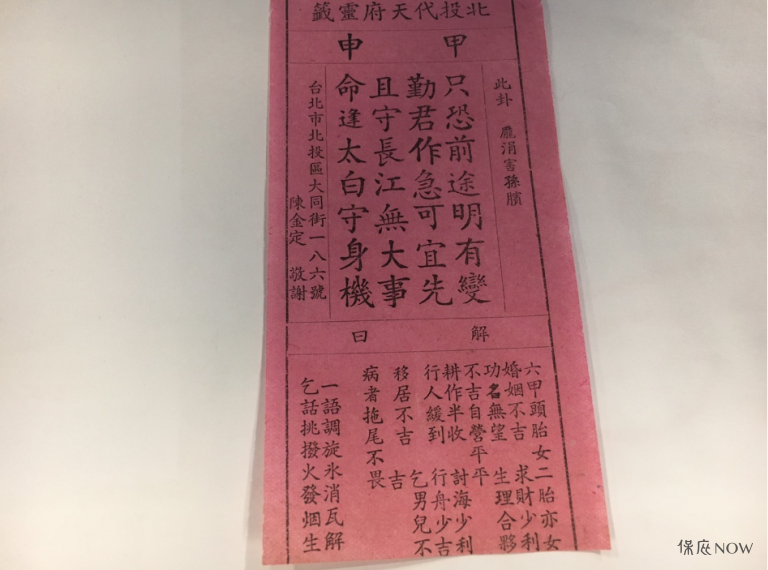 北投代天府靈籤
甲申
此卦 龐涓害孫臏
只恐前途明有變
勤君作急可宜先
且守長江無大事
命逢太白守身機
台北市北投區大同街一八六號
陳金定 敬謝
解曰
六甲頭胎女二胎亦女
婚姻不吉 求財少利
功名無望 生理合夥
不吉自營平平
耕作半收 討海少利
行人緩到 行舟少吉
移居不吉 乞男兒不吉
病者拖尾不畏
一語調旋氷消瓦解
乞話挑撥火發烟生
保庇NOW